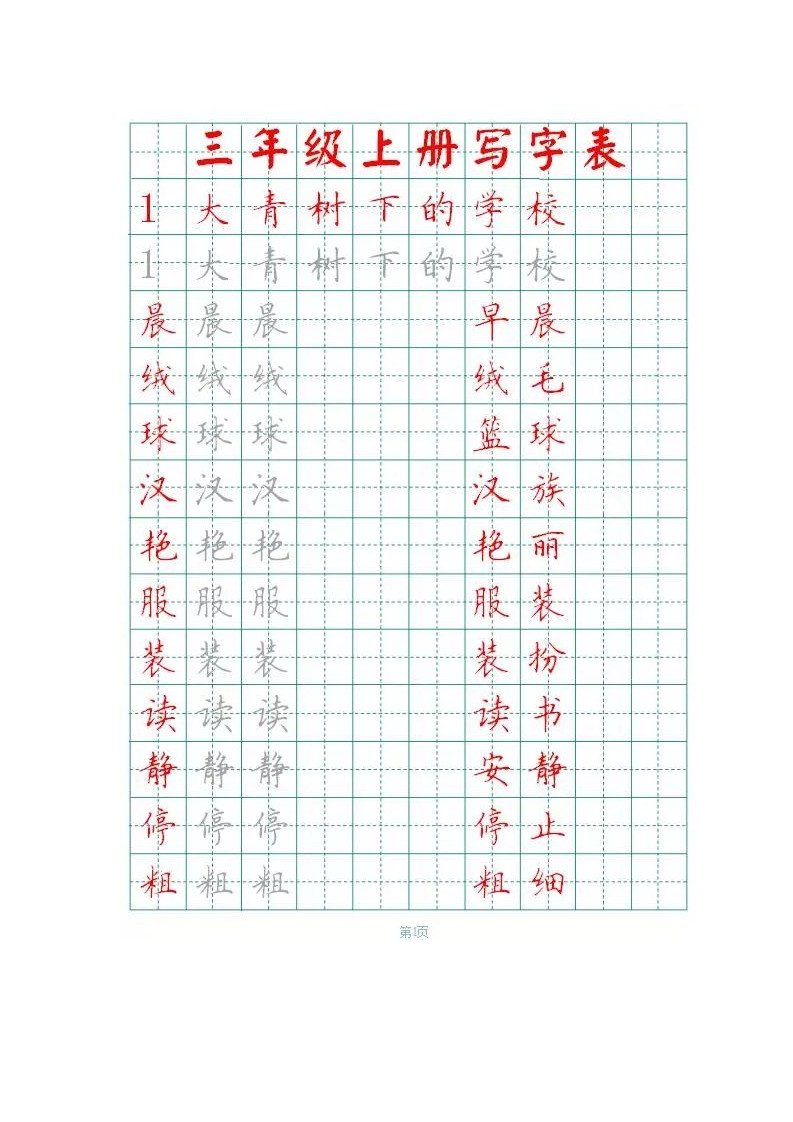 三年级上册写字表
1 大青树下的学校
1 大青树下的学校
晨 晨 晨 早晨
绒 绒 绒 绒毛
球 球 球 篮球
汉 汉 汉 汉族
艳 艳 艳 艳丽
服 服 服 服装
装 装 装 装扮
读 读 读 读书
静 静 静 安静
停 停 停 停止
粗 粗 粗 粗细
第1页